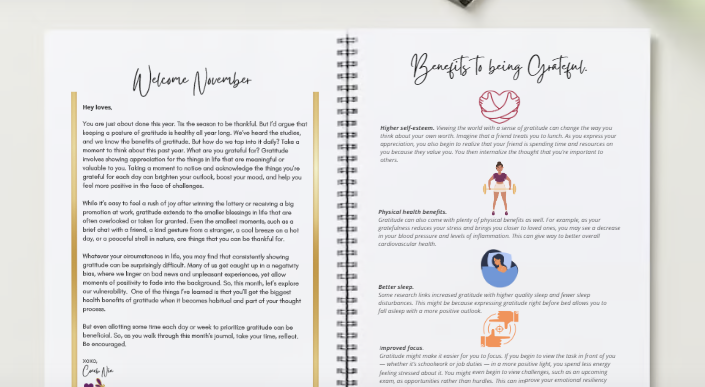 Welcome November
Hey loves,
You are just about done this year. Tis the season to be thankful. But I'd argue that
keeping a posture of gratitude is healthy all year long. We've heard the studies,
and we know the benefits of gratitude. But how do we tap into it daily? Take a
moment to think about this past year. What are you grateful for? Gratitude
involves showing appreciation for the things in life that are meaningful or
valuable to you. Taking a moment to notice and acknowledge the things you're
grateful for each day can brighten your outlook, boost your mood, and help you
feel more positive in the face of challenges.
While it's easy to feel a rush of joy after winning the lottery or receiving a big
promotion at work, gratitude extends to the smaller blessings in life that are
often overlooked or taken for granted. Even the smallest moments, such as a
brief chat with a friend, a kind gesture from a stranger, a cool breeze on a hot
day, or a peaceful stroll in nature, are things that you can be thankful for.
Whatever your circumstances in life, you may find that consistently showing
gratitude can be surprisingly difficult. Many of us get caught up in a negativity
bias, where we linger on bad news and unpleasant experiences, yet allow
moments of positivity to fade into the background. So, this month, let's explore
our vulnerability. One of the things I've learned is that you'll get the biggest
health benefits of gratitude when it becomes habitual and part of your thought
process.
But even allotting some time each day or week to prioritize gratitude can be
beneficial. So, as you walk through this month's journal, take your time, reflect.
Be encouraged.
XOXO,
Benefits to being Grateful.
Higher self-esteem. Viewing the world with a sense of gratitude can change the way you
think about your own worth. Imagine that a friend treats you to lunch. As you express your
appreciation, you also begin to realize that your friend is spending time and resources on
you because they value you. You then internalize the thought that you're important to
others.
Physical health benefits.
Gratitude can also come with plenty of physical benefits as well. For example, as your
gratefulness reduces your stress and brings you closer to loved ones, you may see a decrease
in your blood pressure and levels of inflammation. This can give way to better overall
cardiovascular health.
Better sleep.
Some research links increased gratitude with higher quality sleep and fewer sleep
disturbances. This might be because expressing gratitude right before bed allows you to
fall asleep with a more positive outlook.
improved focus.
Gratitude might make it easier for you to focus. If you begin to view the task in front of you
— whether it's schoolwork or job duties — in a more positive light, you spend less energy
feeling stressed about it. You might even begin to view challenges, such as an upcoming
exam, as opportunities rather than hurdles. This can improve your emotional resiliency